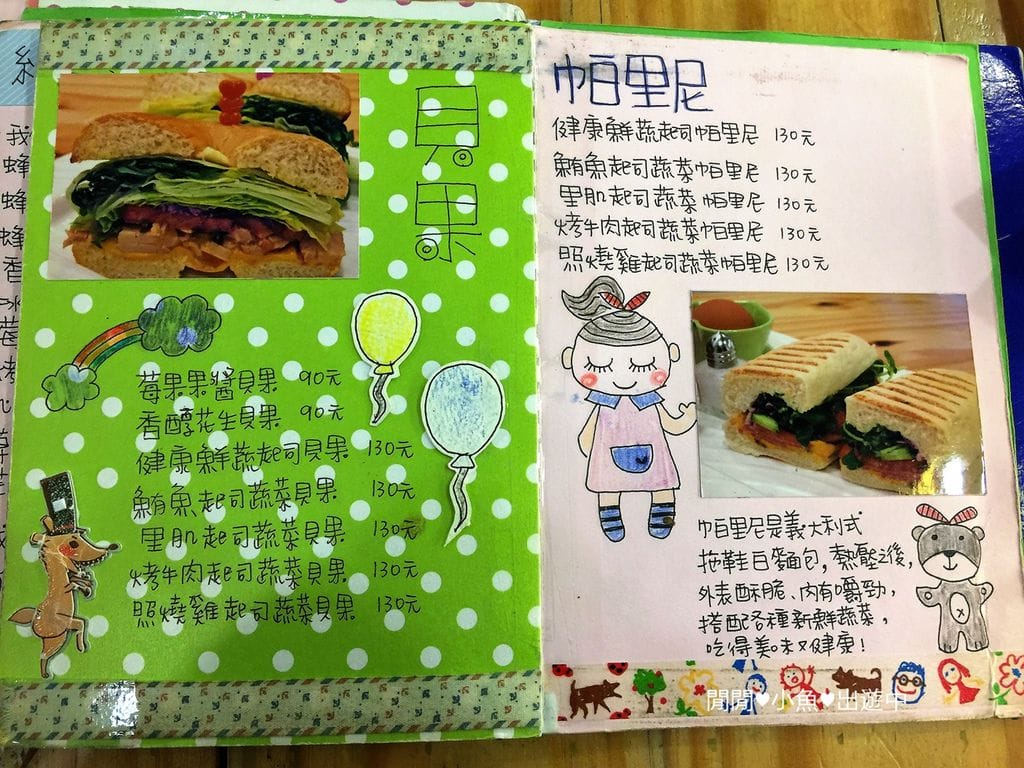 貝果
莓果果醬貝果 90元
香醇花生貝果 90元
健康鮮蔬起司貝果 130元
鮪魚起司蔬菜貝果 130元
里肌起司蔬菜貝果 130元
烤牛肉起司蔬菜貝果 130元
照燒雞起司蔬菜貝果 130元
帕里尼
健康鮮蔬起司帕里尼 130元
鮪魚起司蔬菜帕里尼 130元
里肌起司蔬菜帕里尼 130元
烤牛肉起司蔬菜帕里尼 130元
照燒雞起司蔬菜帕里尼 130元
帕里尼是義大利式
拖鞋白麵包,熱壓之後,
外表酥脆、內有嚼勁,
搭配各種新鮮蔬菜,
吃得美味又健康!
閒閒♥小魚♥出遊中